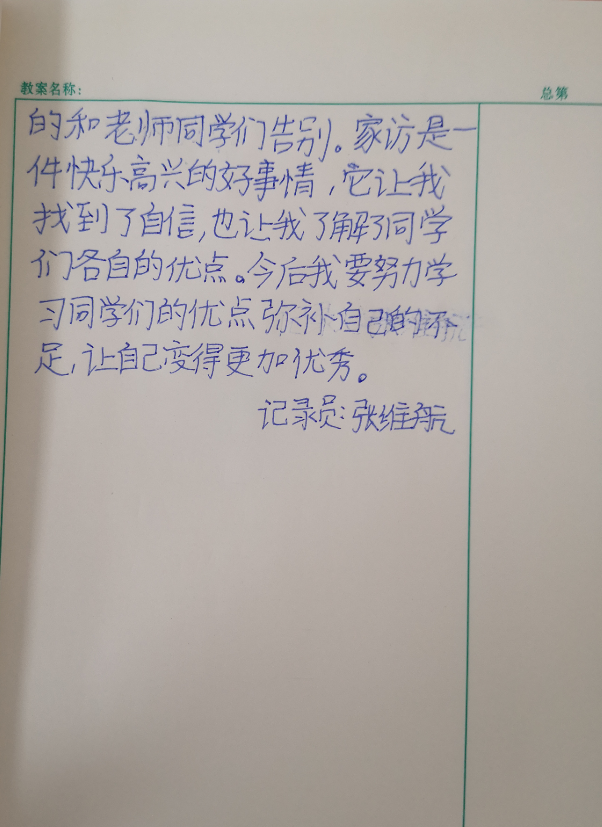 教案名称： 总第
的和老师同学们告别。家访是一
件快乐高兴的好事情，它让我
找到了自信，也让我了解了同学
们各自的优点。今后我要努力学
习同学们的优点弥补自己的不
足，让自己变得更加优秀。
记录员：张维航